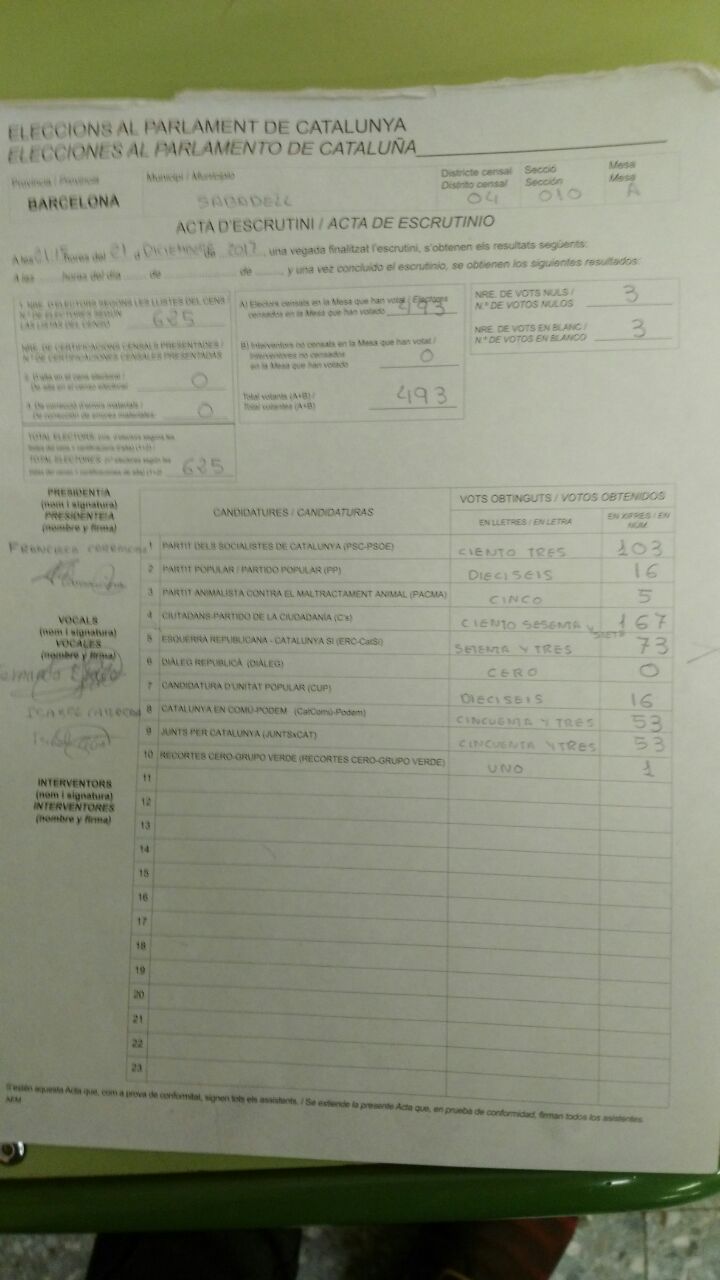 ELECCIONS AL PARLAMENT DE CATALUNYA
ELECCIONES AL PARLAMENTO DE CATALUÑA
Provincia / Provincia
Municipi / Municipio
Districte censal Secció Mesa
Distrito censal Sección Mesa
BARCELONA SABADELL 04 010 A
ACTA D'ESCRUTINI / ACTA DE ESCRUTINIO
A les 21:15 hores del 21 d DICIEMBRE de 2017, una vegada finalitzat l'escrutini, s'obtenen els resultats següents:
A las horas del día de de y una vez concluido el escrutinio, se obtienen los siguientes resultados:
1. NRE. D'ELECTORS SEGONS LES LLISTES DEL CENS /
N.º DE ELECTORES SEGÚN
LAS LISTAS DEL CENSO 625
NRE. DE CERTIFICACIONS CENSALS PRESENTADES /
N.º DE CERTIFICACIONES CENSALES PRESENTADAS
0
0
TOTAL ELECTORS
TOTAL ELECTORES
625
A) Electors censats en la Mesa que han votat / Electores
censados en la Mesa que han votado 493
B) Interventors no censats en la Mesa que han votat /
Interventores no censados
en la Mesa que han votado 0
Total votants (A+B) /
Total votantes (A+B) 493
NRE. DE VOTS NULS /
N.º DE VOTOS NULOS 3
NRE. DE VOTS EN BLANC /
N.º DE VOTOS EN BLANCO 3
PRESIDENT/A
(nom i signatura)
PRESIDENTE/A
(nombre y firma)
VOCALS
(nom i signatura)
VOCALES
(nombre y firma)
INTERVENTORS
(nom i signatura)
INTERVENTORES
(nombre y firma)
CANDIDATURES / CANDIDATURAS
VOTS OBTINGUTS / VOTOS OBTENIDOS
EN LLETRES / EN LETRA
EN XIFRES / EN NÚM.
1 PARTIT DELS SOCIALISTES DE CATALUNYA (PSC-PSOE) CIENTO TRES 103
2 PARTIT POPULAR / PARTIDO POPULAR (PP) DIECISEIS 16
3 PARTIT ANIMALISTA CONTRA EL MALTRACTAMENT ANIMAL (PACMA) CINCO 5
4 CIUTADANS-PARTIDO DE LA CIUDADANÍA (C's) CIENTO SESENTA Y SIETE 167
5 ESQUERRA REPUBLICANA - CATALUNYA SI (ERC-CatSí) SETENTA Y TRES 73
6 DIÀLEG REPUBLICÀ (DIÀLEG) CERO 0
7 CANDIDATURA D'UNITAT POPULAR (CUP) DIECISEIS 16
8 CATALUNYA EN COMÚ-PODEM (CatComú-Podem) CINCUENTA Y TRES 53
9 JUNTS PER CATALUNYA (JUNTSxCAT) CINCUENTA Y TRES 53
10 RECORTES CERO-GRUPO VERDE (RECORTES CERO-GRUPO VERDE) UNO 1
11
12
13
14
15
16
17
18
19
20
21
22
23
S'estén aquesta Acta que, com a prova de conformitat, signen tots els assistents. / Se extiende la presente Acta que, en prueba de conformidad, firman todos los asistentes.